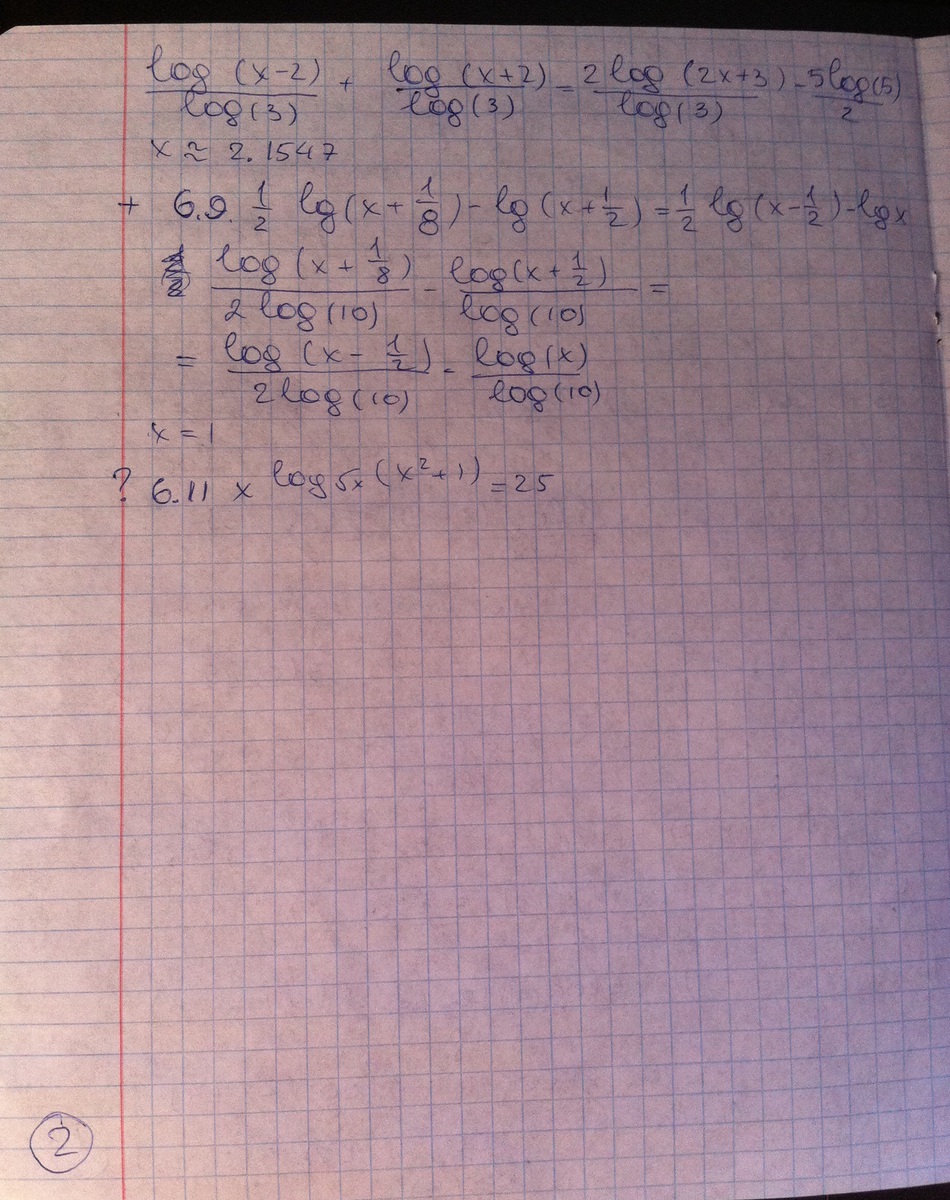 log (x-2)/log(3) + log (x+2)/log(3) = 2 log (2x+3)/log(3) - 5 log(5)/2
x ≈ 2.1547
+ 6.9. 1/2 lg(x+1/8) - lg(x+1/2) = 1/2 lg(x-1/2) - lg x
log (x + 1/8)/2 log (10) - log(x + 1/2)/log (10) =
= log (x - 1/2)/2 log (10) - log(x)/log (10)
x = 1
? 6.11 x^log_5x (x²+1) = 25
2